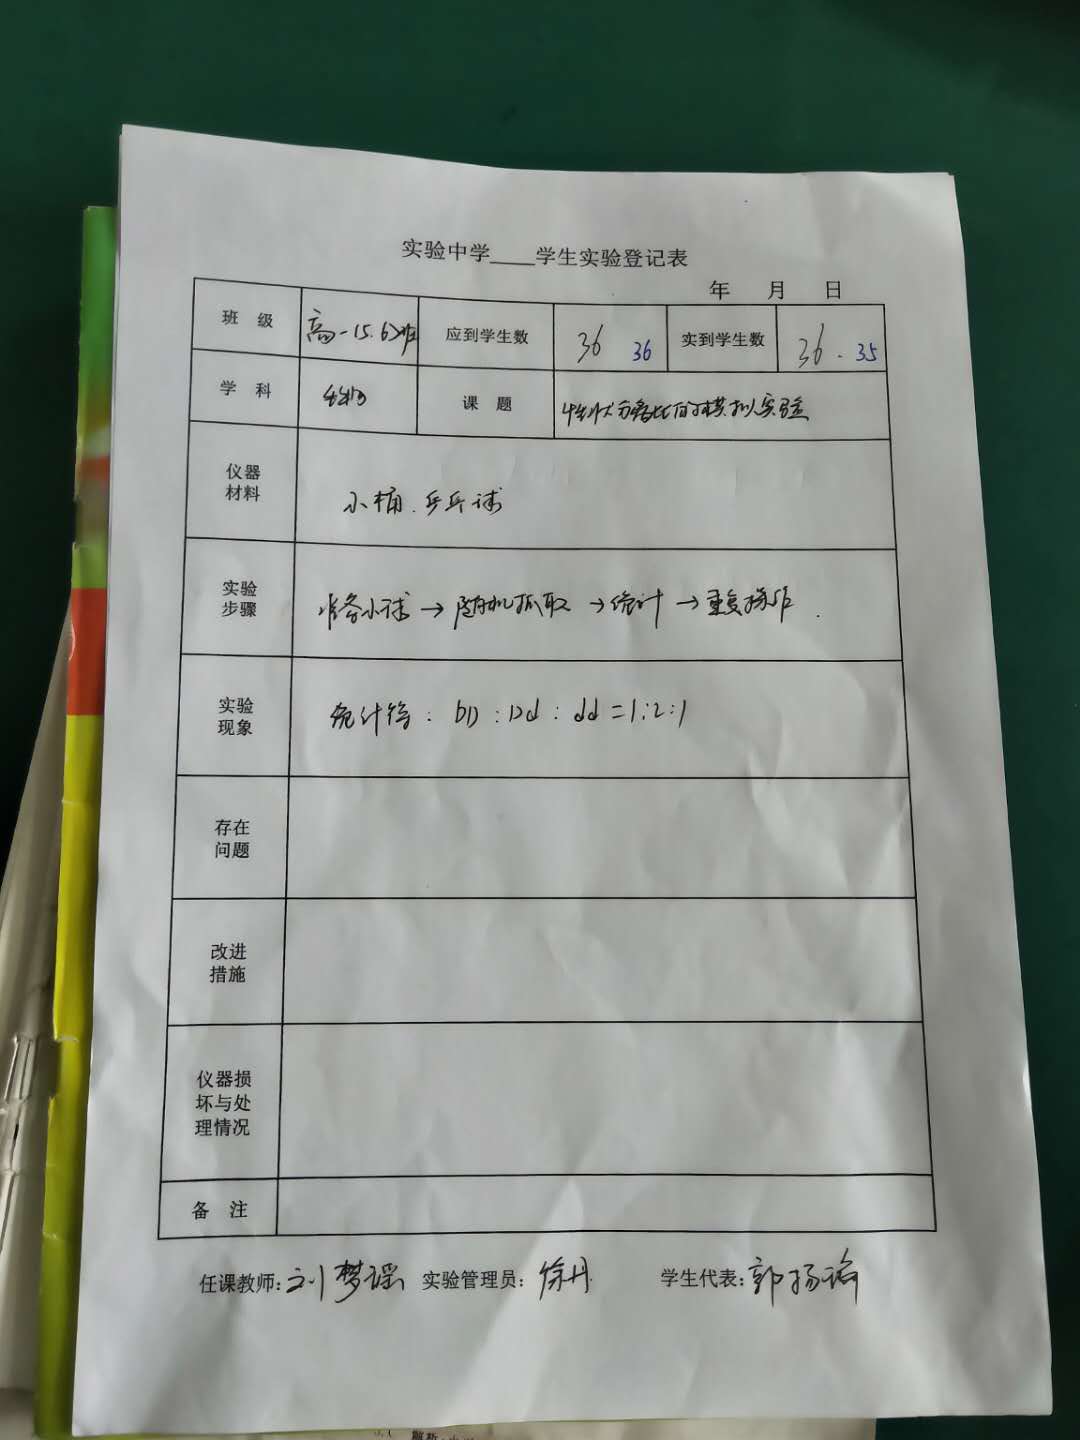 实验中学____学生实验登记表
年 月 日
班 级 高一(5.6)班 应到学生数 36 36 实到学生数 36 . 35
学 科 生物 课 题 性状分离比的模拟实验
仪器
材料
小桶.乒乓球
实验
步骤
准备小球→随机抓取→统计→重复操作.
实验
现象
统计得: DD : Dd : dd = 1:2:1
存在
问题
改进
措施
仪器损
坏与处
理情况
备 注
任课教师: 刘梦瑶 实验管理员: 徐丹 学生代表: 郭扬